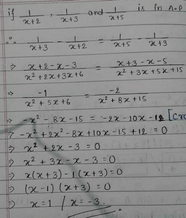 if 1/(x+2), 1/(x+3) and 1/(x+5) is in A.P
∴ 1/(x+3) - 1/(x+2) = 1/(x+5) - 1/(x+3)
⇒ (x+2-x-3)/(x²+2x+3x+6) = (x+3-x-5)/(x²+3x+5x+15)
⇒ -1/(x²+5x+6) = -2/(x²+8x+15)
⇒ -x²-8x-15 = -2x-10x-12
⇒ -x²+2x²-8x+10x-15+12=0
⇒ x²+2x-3=0
⇒ x²+3x-x-3=0
⇒ x(x+3)-1(x+3)=0
⇒ (x-1)(x+3)=0
⇒ x=1 / x=-3.